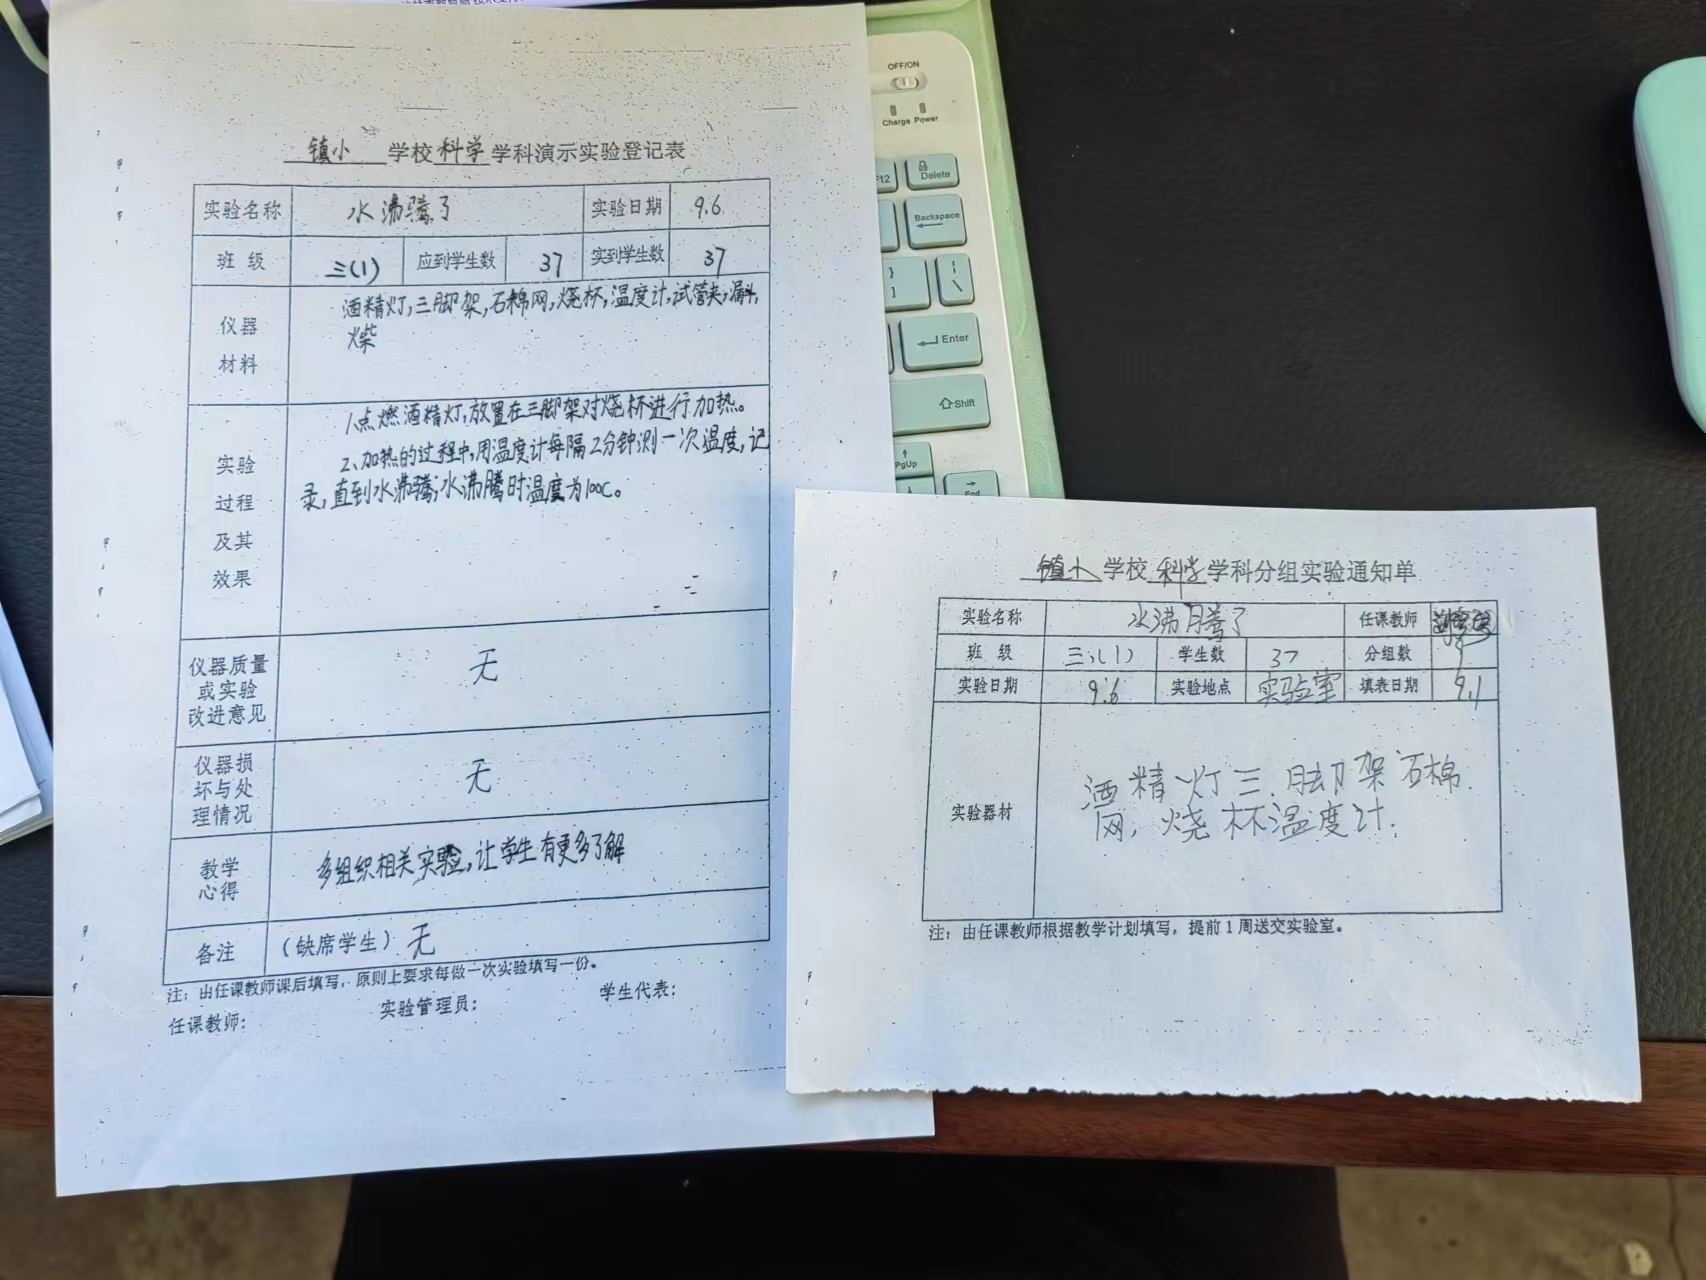 镇小 学校 科学 学科演示实验登记表
实验名称 水沸腾了 实验日期 9.6
班 级 三(1) 应到学生数 37 实到学生数 37
仪器
材料
酒精灯,三脚架,石棉网,烧杯,温度计,试管夹,漏斗,
火柴
实验
过程
及其
效果
1、点燃酒精灯,放置在三脚架对烧杯进行加热。
2、加热的过程中,用温度计每隔2分钟测一次温度,记
录,直到水沸腾;水沸腾时温度为100C。
仪器质量
或实验
改进意见
无
仪器损
坏与处
理情况
无
教学
心得
多组织相关实验,让学生有更多了解
备注 (缺席学生) 无
注:由任课教师课后填写,原则上要求每做一次实验填写一份。
任课教师: 实验管理员: 学生代表:
OFF/ON
Charge Power
F12 Delete
Backspace
} ]
| \
Enter
Shift
PgUp
End
镇小 学校 科学 学科分组实验通知单
实验名称 水沸腾了 任课教师
班 级 三(1) 学生数 37 分组数 9
实验日期 9.6 实验地点 实验室 填表日期 9.1
实验器材
酒精灯三脚架石棉
网,烧杯温度计.
注:由任课教师根据教学计划填写,提前1周送交实验室。